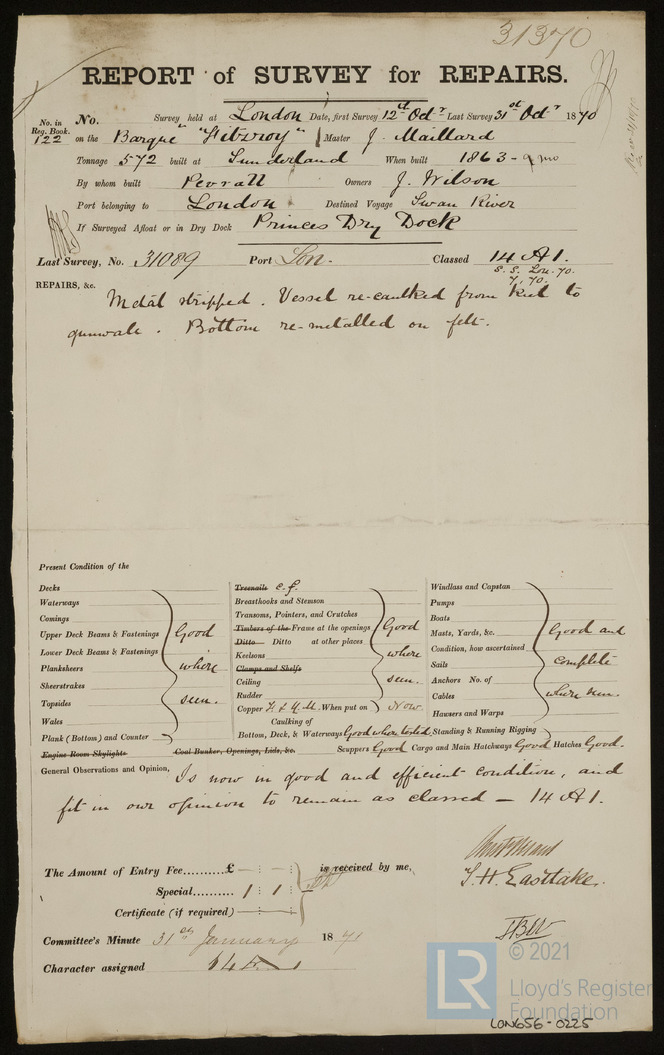 31370
REPORT of SURVEY for REPAIRS.
No. in Reg. Book. No. Survey held at London Date, first Survey 12th Octr Last Survey 31st Octr 1870
122 on the Barque "Fitzroy" Master J. Maillard
Tonnage 572 built at Sunderland When built 1863 - 9 mo
By whom built Owners J. Wilson
Port belonging to London Destined Voyage Swan River
If Surveyed Afloat or in Dry Dock Princes Dry Dock
Last Survey, No. 31089 Port Lon. Classed 14 A1.
S.S. Lon. 70.
7, 70.
REPAIRS, &c.
Metal stripped. Vessel re-caulked from keel to
gunwale. Bottom re-metalled on felt.
Present Condition of the
Decks
Waterways
Comings
Upper Deck Beams & Fastenings
Lower Deck Beams & Fastenings
Planksheers
Sheerstrakes
Topsides
Wales
Plank (Bottom) and Counter
Good
where
seen.
Engine Room Skylights Coal Bunker, Openings, Lids, &c.
Treenails
Breasthooks and Stemson
Transoms, Pointers, and Crutches
Timbers of the Frame at the openings
Ditto Ditto at other places
Keelsons
Clamps and Shelfs
Ceiling
Rudder
Good
where
seen.
Copper F. & Y.M. When put on Now.
Caulking of
Bottom, Deck, & Waterways Good where tested.
Windlass and Capstan
Pumps
Boats
Masts, Yards, &c.
Condition, how ascertained
Sails
Anchors No. of
Cables
Hawsers and Warps
Standing & Running Rigging
Good and
complete
where seen.
Scuppers Good Cargo and Main Hatchways Good Hatches Good.
General Observations and Opinion, Is now in good and efficient condition, and
fit in our opinion to remain as classed - 14 A1.
The Amount of Entry Fee..........£ - : - : is received by me,
Special.......... 1 : 1 : -
Certificate (if required)
T. H. Eastlake.
Committee's Minute 31st January 1871
Character assigned 14 A1
© 2021
LR
Lloyd's Register
Foundation
LON656-0225